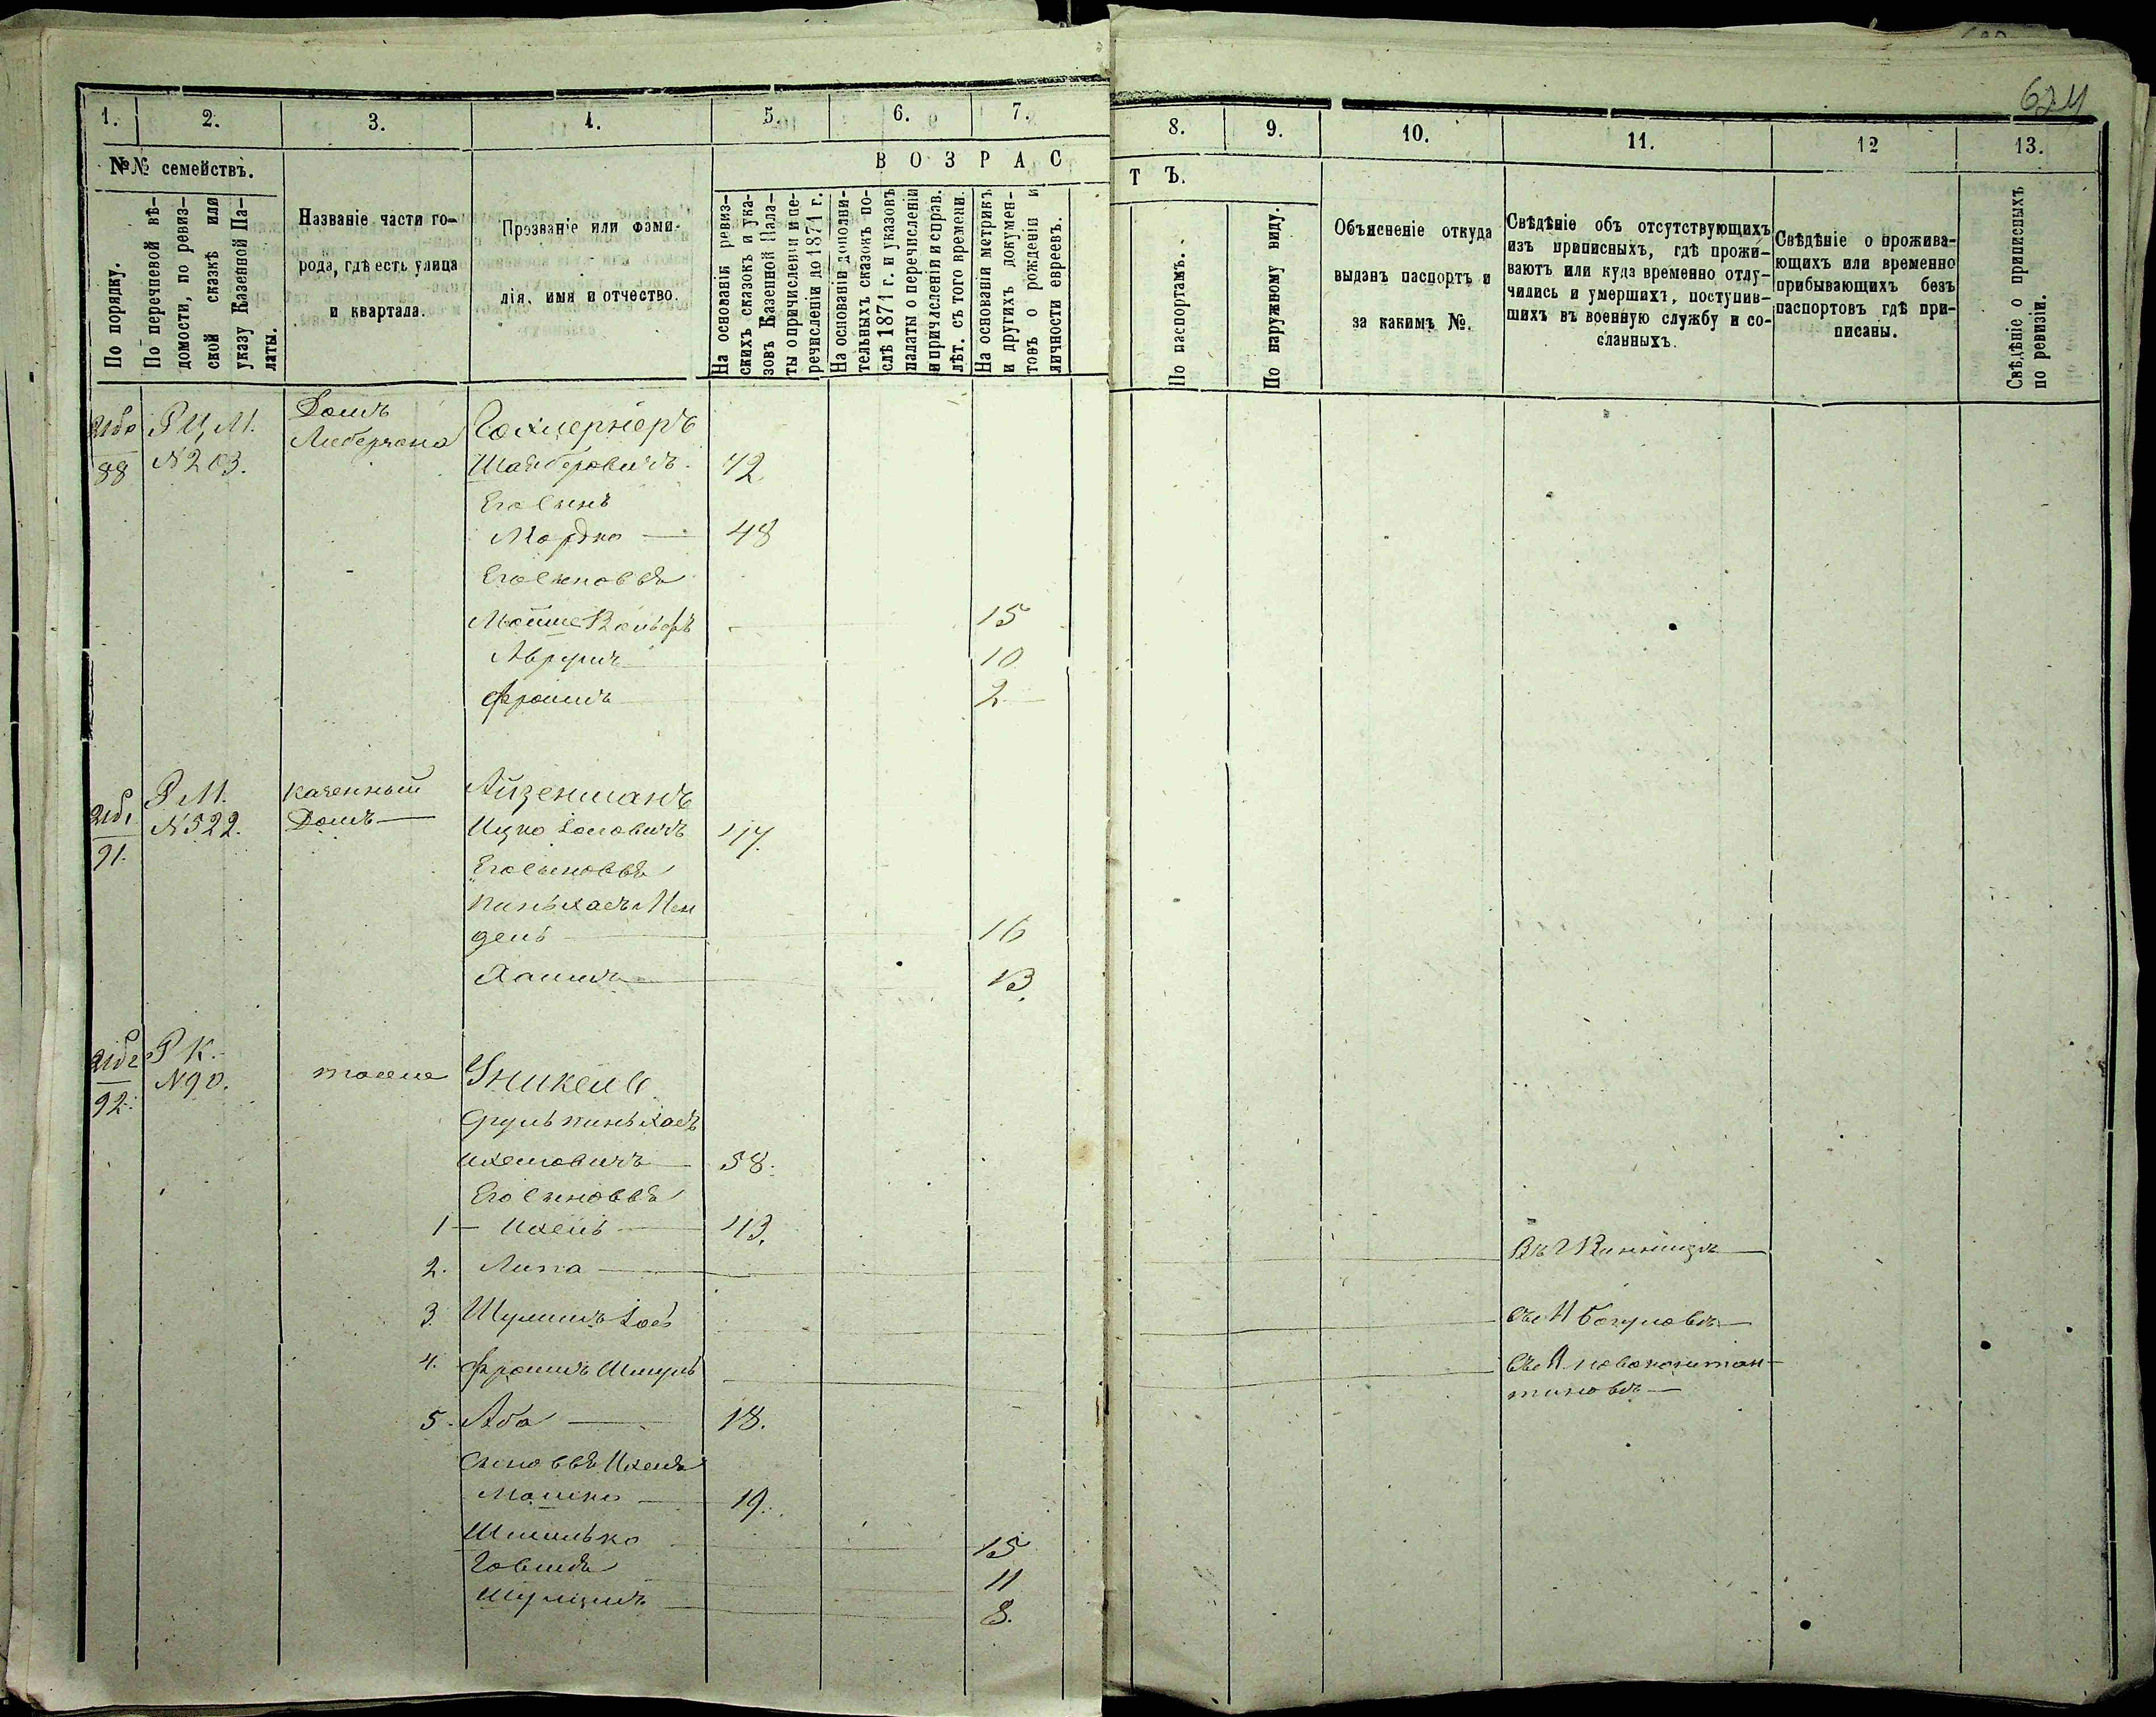 1.
2.
3.
4.
5.
6.
7.
8.
9.
10.
11.
12
13.
№№ семействъ.
По порядку.
По перечневой вѣ-
домости, по ревиз-
ской сказкѣ или
указу Казенной Па-
латы.
Названіе части го-
рода, гдѣ есть улица
и квартала.
Прозваніе или фами-
лія, имя и отчество.
ВОЗРАС
ТЪ.
На основаніи ревиз-
скихъ сказокъ и ука-
зовъ Казенной Пала-
ты о причисленіи и пе-
речисленіи до 1871 г.
На основаніи дополни-
тельныхъ сказокъ по-
слѣ 1871 г. и указовъ
палаты о перечисленіи
и причисленіи и справ.
лѣт. съ того времени.
На основаніи метрикъ
и другихъ докумен-
товъ о рожденіи и
личности евреевъ.
По паспортамъ.
По наружному виду.
Объясненіе откуда
выданъ паспортъ и
за какимъ №.
Свѣдѣніе объ отсутствующихъ
изъ приписныхъ, гдѣ прожи-
ваютъ или куда временно отлу-
чились и умершихъ, поступив-
шихъ въ военную службу и со-
сланныхъ.
Свѣдѣніе о прожива-
ющихъ или временно
прибывающихъ безъ
паспортовъ гдѣ при-
писаны.
Свѣдѣніе о приписныхъ
по ревизіи.
88
N 203.
Домъ
Либермана
72
Его сынъ
Мордко 48
Его сыновья
Мойше Вольфъ 15
Аврумъ 10
Фроимъ 2
91.
Р М.
N 522.
казенный
Домъ
Айзенманъ
Ицко
Его сыновья
Пиньхасъ Мен
дель 16
Хаимъ 13.
92.
Р К.
N 90.
тоже
Сруль Пиньхасъ
Ихелевичъ 58.
Его сыновья
1 Ихель 43.
2. Липа Въ г Винницѣ
3. Шулимъ
4. Фроимъ Шмуль
5. Аба 18.
Сыновья Ихеля
Мошко 19.
Шмилько 15
11
8.